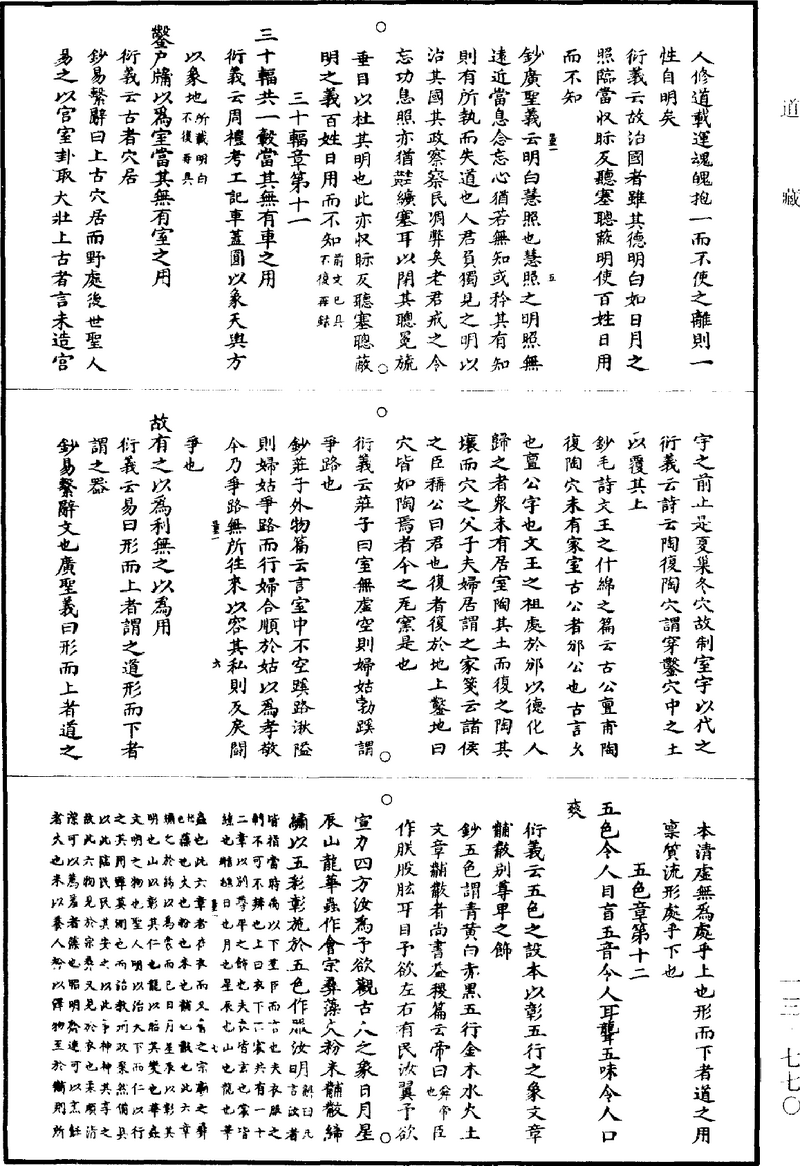 道藏
人修道載運魂魄抱一而不使之離則一
性自明矣
衍義云故治國者雖其德明白如日月之
照臨當収眎反聽塞聰蔽明使百姓日用
而不知
鈔廣聖義云明白慧照也慧照之明照無
遠近當息念忘心猶若無知或矜其有知
則有所執而失道也人君負獨見之明以
治其國其政察察民凋弊矣老君戒之令
忘功息照亦猶黈纊塞耳以閉其聰冕旒
垂目以杜其明也此亦収眎反聽塞聰蔽
明之義百姓日用而不知前文已具不復再錄
三十輻章第十一
三十輻共一轂當其無有車之用
衍義云周禮考工記車蓋圓以象天輿方
以象地所載明白不復再具
鑿户牖以為室當其無有室之用
衍義云古者穴居
鈔易繫辭曰上古穴居而野處後世聖人
易之以宫室卦取大壯上古者言未造宫
宇之前止是夏巢冬穴故制室宇以代之
衍義云詩云陶復陶穴謂穿鑿穴中之土
以覆其上
鈔毛詩文王之什綿之篇云古公亶甫陶
復陶穴未有家室古公者邠公也古言久
也亶公字也文王之祖處於邠以德化人
歸之者衆未有居室陶其土而復之陶其
壤而穴之父子夫婦居謂之家箋云諸侯
之臣稱公曰君也復者復於地上鑿地曰
穴皆如陶焉者今之瓦窯是也
衍義云莊子曰室無虚空則婦姑勃蹊謂
爭路也
鈔莊子外物篇云言室中不空蹊路湫隘
則婦姑爭路而行婦合順於姑以為孝敬
今乃爭路無所往來以容其私則反戾鬬
爭也
故有之以為利無之以為用
衍義云易曰形而上者謂之道形而下者
謂之器
鈔易繫辭文也廣聖義曰形而上者道之
本清虚無為處乎上也形而下者道之用
稟質流形處乎下也
五色章第十二
五色令人目盲五音令人耳聾五味令人口
爽
衍義云五色之設本以彰五行之象文章
黼黻别尊卑之飾
鈔五色謂青黄白赤黑五行金木水火土
文章黼黻者尚書益稷篇云帝曰舜帝臣也
作朕股肱耳目予欲左右有民汝翼予欲
宣力四方汝為予欲觀古人之象日月星
辰山龍華蟲作會宗彝藻火粉米黼黻絺
繡以五彩彰施於五色作服汝明
一三·七七〇